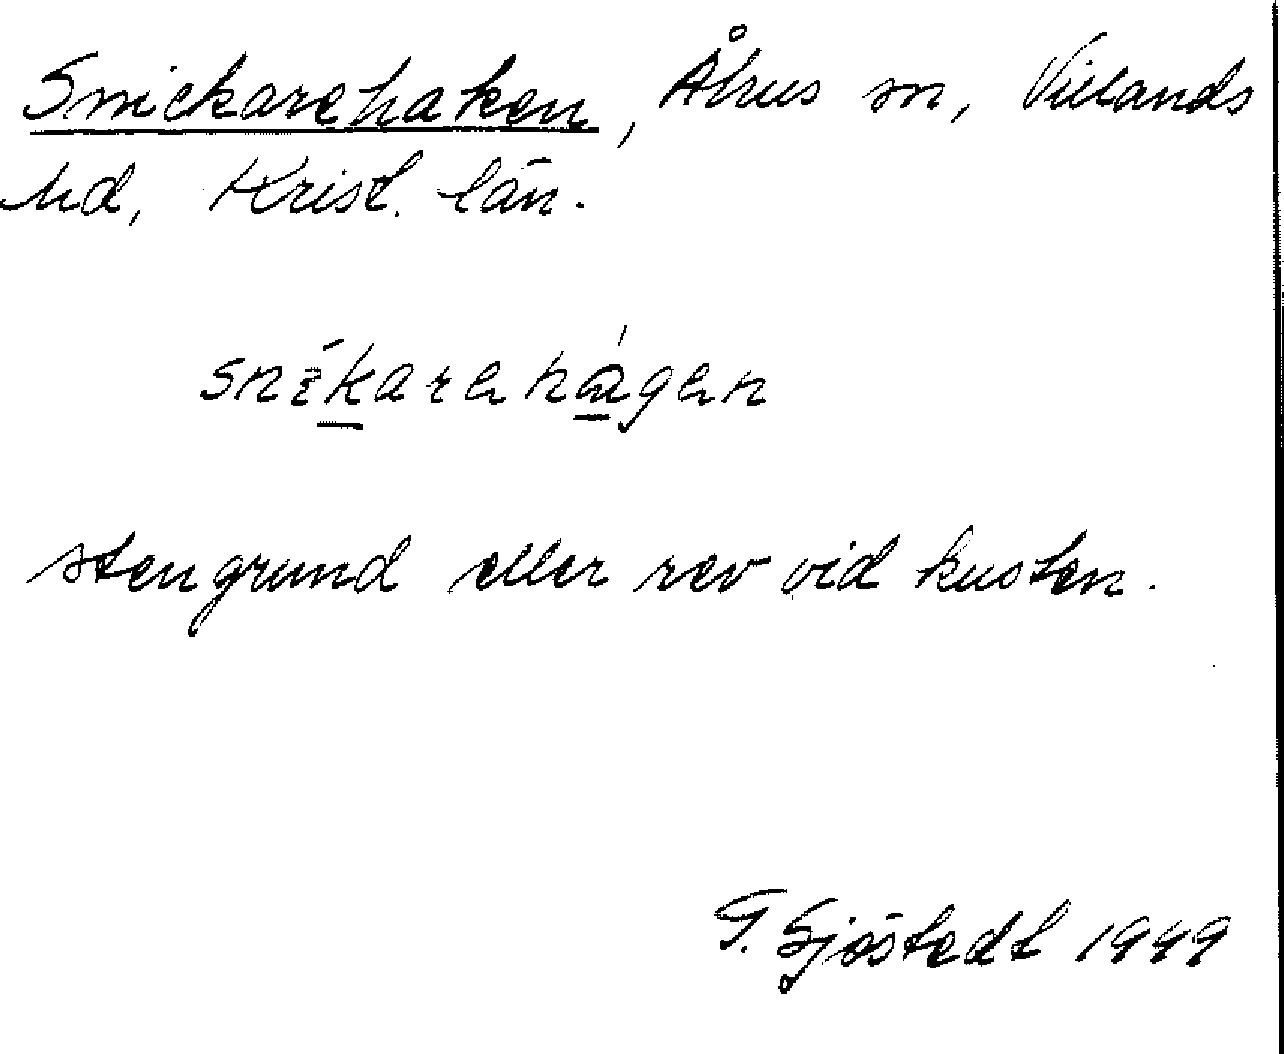 Snickarehaken, Åhus sn, Villands
hd, Krist. län.
snikarehagen
stengrund eller rev vid kusten.
G. Sjöstedt 1949